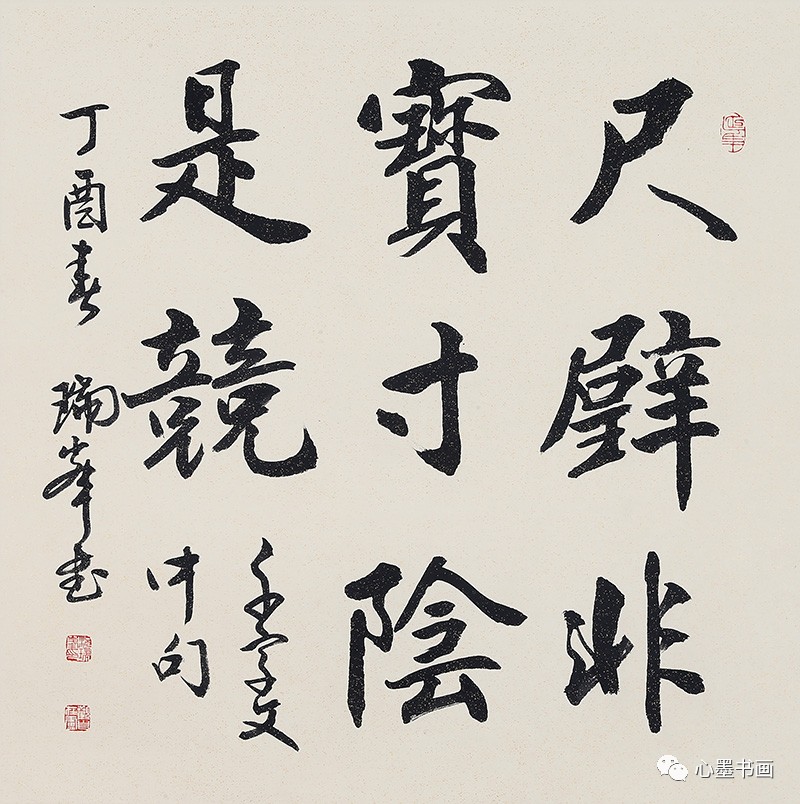 尺璧非
寶寸陰
是競
千字文
中句
丁酉春 瑞峯書
心墨书画